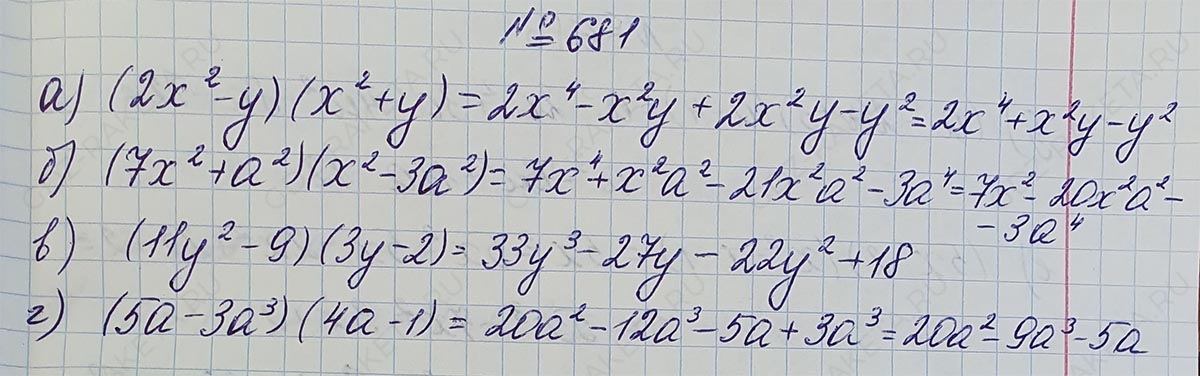 № 681
а) (2x² - y)(x² + y) = 2x⁴ - x²y + 2x²y - y² = 2x⁴ + x²y - y²
б) (7x² + a²)(x² - 3a²) = 7x⁴ + x²a² - 21x²a² - 3a⁴ = 7x² - 20x²a² -
- 3a⁴
в) (11y² - 9)(3y - 2) = 33y³ - 27y - 22y² + 18
г) (5a - 3a³)(4a - 1) = 20a² - 12a³ - 5a + 3a³ = 20a² - 9a³ - 5a